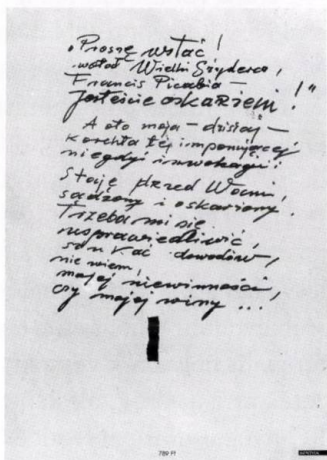 „Proszę wstać!
wołał Wielki Szyderca,
Francis Picabia —
Jesteście oskarżeni!"
A oto moja — dzisiaj —
tej imponującej
niegdyś inwokacji:
Stoję przed Wami,
sądzony i oskarżony.
Trzeba mi się
usprawiedliwić,
szukać dowodów,
nie wiem,
mojej niewinności,
czy mojej winy ...
789 PI